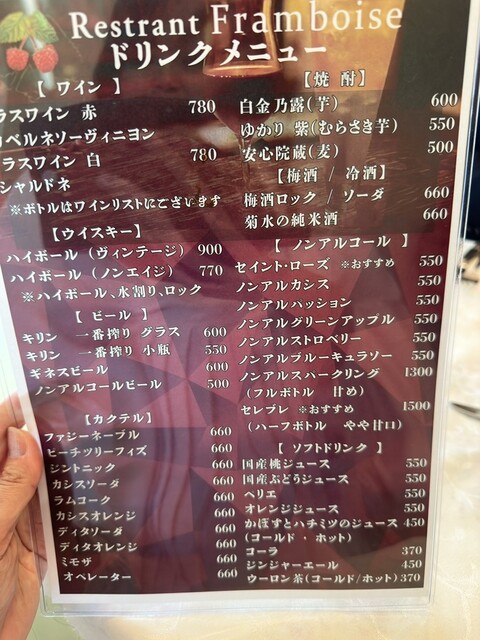 Restrant Framboise
ドリンクメニュー
【 ワイン 】
ラスワイン 赤 780
ベルネソーヴィニヨン
ラスワイン 白 780
シャルドネ
※ボトルはワインリストにございます
【ウイスキー】
ハイボール (ヴィンテージ) 900
ハイボール (ノンエイジ) 770
※ハイボール、水割り、ロック
【 ビール 】
キリン 一番搾り グラス 600
キリン 一番搾り 小瓶 550
ギネスビール 600
ノンアルコールビール 500
【カクテル】
ファジーネーブル 660
ピーチツリーフィズ 660
ジントニック 660
カシスソーダ 660
ラムコーク 660
カシスオレンジ 660
ディタソーダ 660
ディタオレンジ 660
ミモザ 660
オペレーター 660
【焼 酎】
白金乃露(芋) 600
ゆかり 紫(むらさき芋) 550
安心院蔵(麦) 500
【梅酒 / 冷酒】
梅酒ロック / ソーダ 660
菊水の純米酒 660
【 ノンアルコール 】
セイント・ローズ ※おすすめ 550
ノンアルカシス 550
ノンアルパッション 550
ノンアルグリーンアップル 550
ノンアルストロベリー 550
ノンアルブルーキュラソー 550
ノンアルスパークリング 1300
(フルボトル 甘め)
セレブレ ※おすすめ 1500
(ハーフボトル やや甘口)
【 ソフトドリンク 】
国産桃ジュース 550
国産ぶどうジュース 550
ペリエ 550
オレンジジュース 550
かぼすとハチミツのジュース 450
(コールド ・ ホット)
コーラ 370
ジンジャーエール 450
ウーロン茶(コールド/ホット) 370